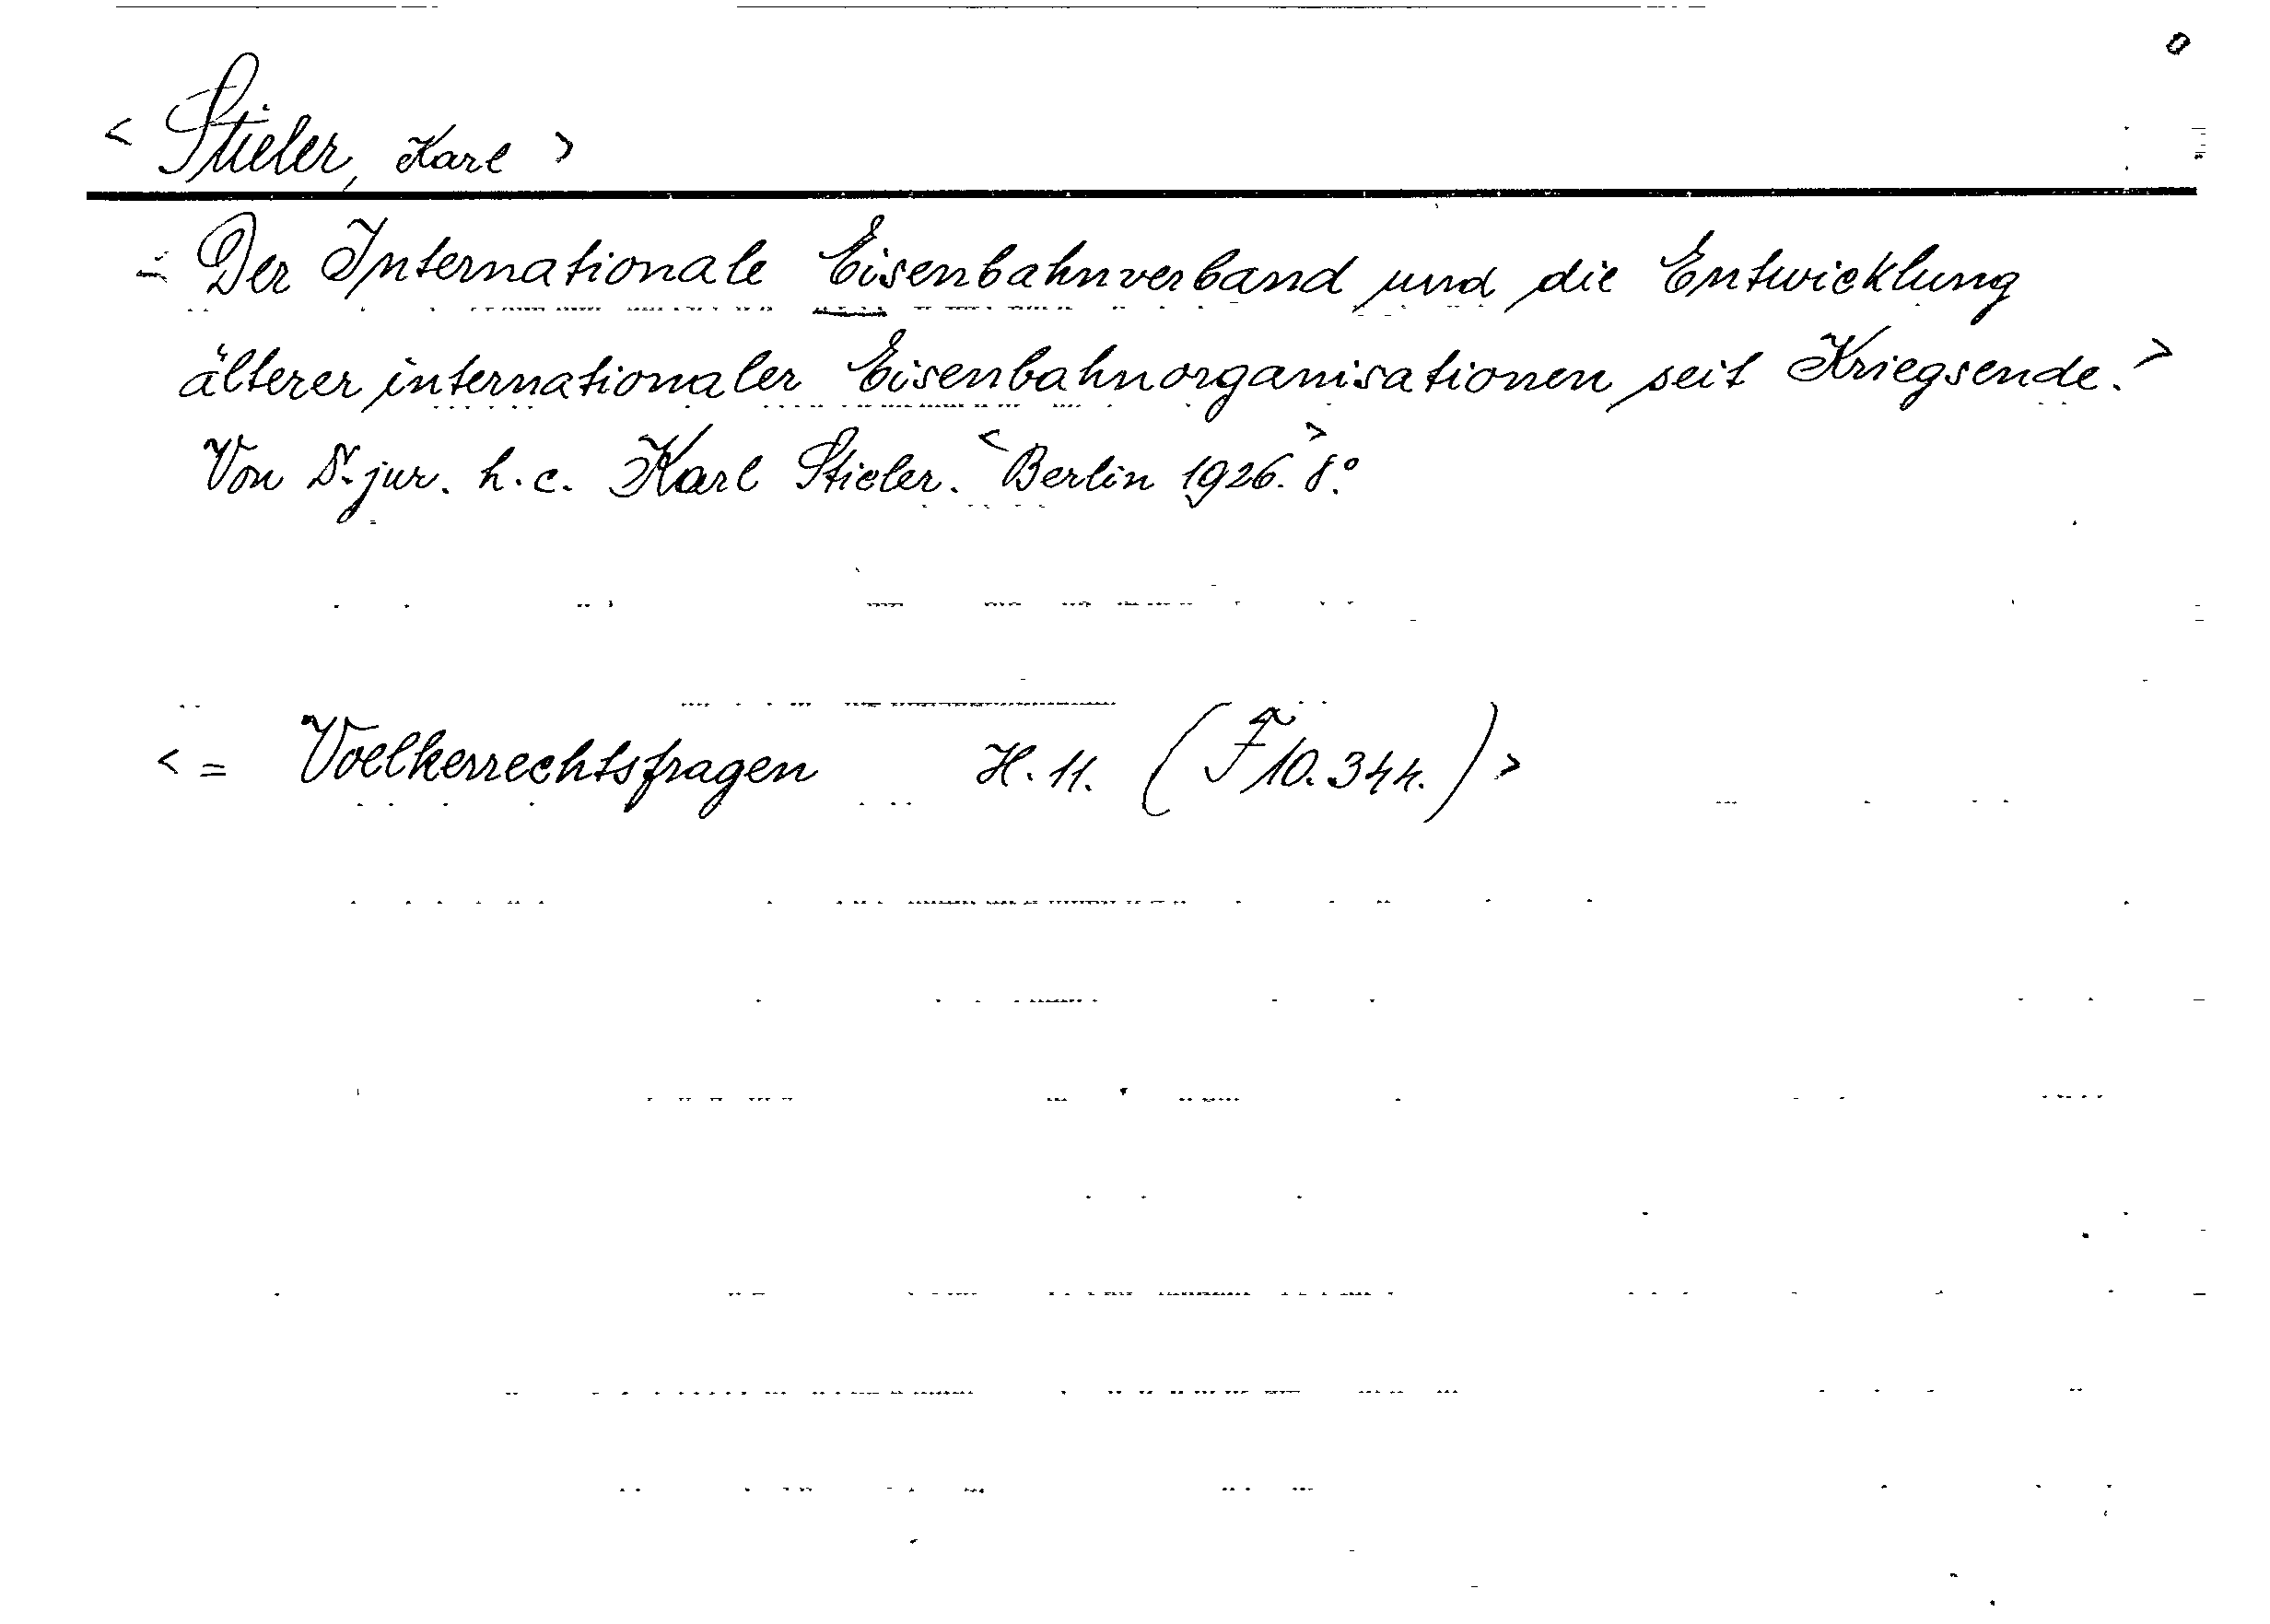 < Stieler, Karl >
= Der Internationale Eisenbahnverband und die Entwicklung
älterer internationaler Eisenbahnorganisationen seit Kriegsende. >
Von Dr. jur. h. c. Karl Stieler. < Berlin 1926. > 8.°
< = Voelkerrechtsfragen H. 11. (F 10.344.) >